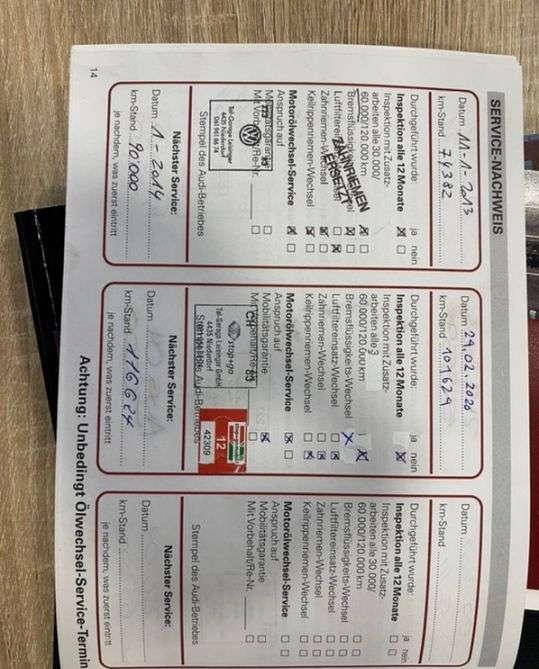 SERVICE-NACHWEIS
Datum 11-1-2013
km-Stand 74382
Durchgeführt wurde: ja nein
Inspektion alle 12 Monate
Inspektion mit Zusatz-
arbeiten alle 30.000/
60.000/120.000 km
Bremsflüssigkeits-Wechsel
Luftfilterersatz-Wechsel
Zahnriemen-Wechsel
Keilrippenriemen-Wechsel
ZAHNRIEMEN
ERSETZT
Motorölwechsel-Service
Anspruch auf
Mobilitätsgarantie
Mit Vorbehalt/Re-Nr.
Tal-Garage Leisinger
4435 Niederdorf
061 961 86 74
Stempel des Audi-Betriebes
Nächster Service:
Datum 1-2014
km-Stand 90.000
je nachdem, was zuerst eintritt
14
Datum 29.02.2020
km-Stand 101624
Durchgeführt wurde: ja nein
Inspektion alle 12 Monate
Inspektion mit Zusatz-
arbeiten alle 3
60.000/120.000 km
Bremsflüssigkeits-Wechsel
Luftfilterersatz-Wechsel
Zahnriemen-Wechsel
Keilrippenriemen-Wechsel
Motorölwechsel-Service
Anspruch auf
Mobilitätsgarantie
Mit Vorbehalt/Re-Nr.
stop+go
Tal-Garage Leisinger GmbH
4435 Niederdorf
12
42309
Nächster Service:
Datum
km-Stand 116624
je nachdem, was zuerst eintritt
Datum
km-Stand
Durchgeführt wurde: ja nein
Inspektion alle 12 Monate
Inspektion mit Zusatz-
arbeiten alle 30.000/
60.000/120.000 km
Bremsflüssigkeits-Wechsel
Luftfilterersatz-Wechsel
Zahnriemen-Wechsel
Keilrippenriemen-Wechsel
Motorölwechsel-Service
Anspruch auf
Mobilitätsgarantie
Mit Vorbehalt/Re-Nr.
Stempel des Audi-Betriebes
Nächster Service:
Datum
km-Stand
je nachdem, was zuerst eintritt
Achtung: Unbedingt Ölwechsel-Service-Termin